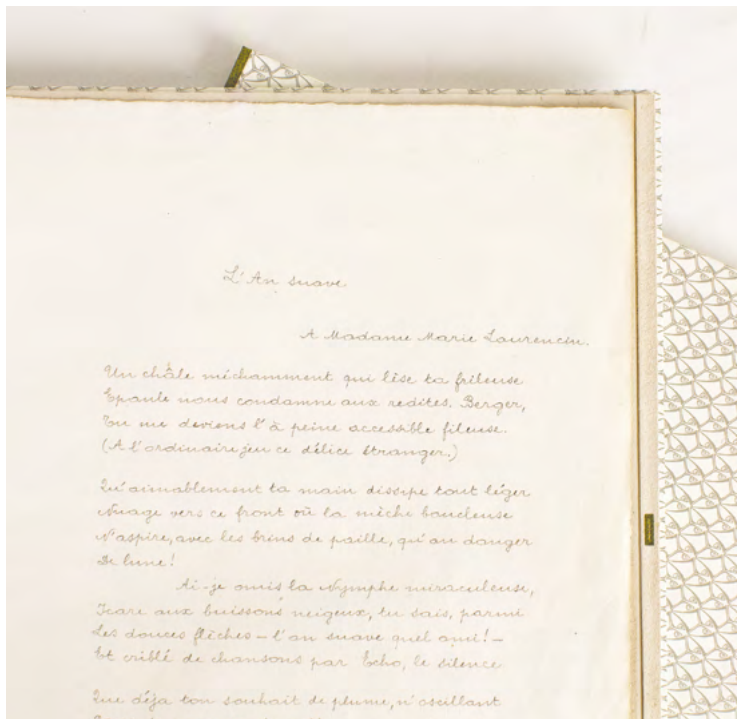 L'An suave
A Madame Marie Laurencin.
Un châle méchamment qui lèse ta frileuse
Epaule nous condamne aux redites. Berger,
Tu me deviens l'à peine accessible fileuse.
(A l'ordinaire jeu ce délice étranger.)
Qu'aimablement ta main dissipe tout léger
Nuage vers ce front où la mèche boucleuse
N'aspire, avec les brins de paille, qu'au danger
De lune!
Ai-je omis la Nymphe miraculeuse,
Icare aux buissons neigeux, tu sais, parmi
Les douces flèches – l'an suave quel ami! –
Et criblé de chansons par Echo, le silence
Que déja ton souhait de plume, n'oscillant